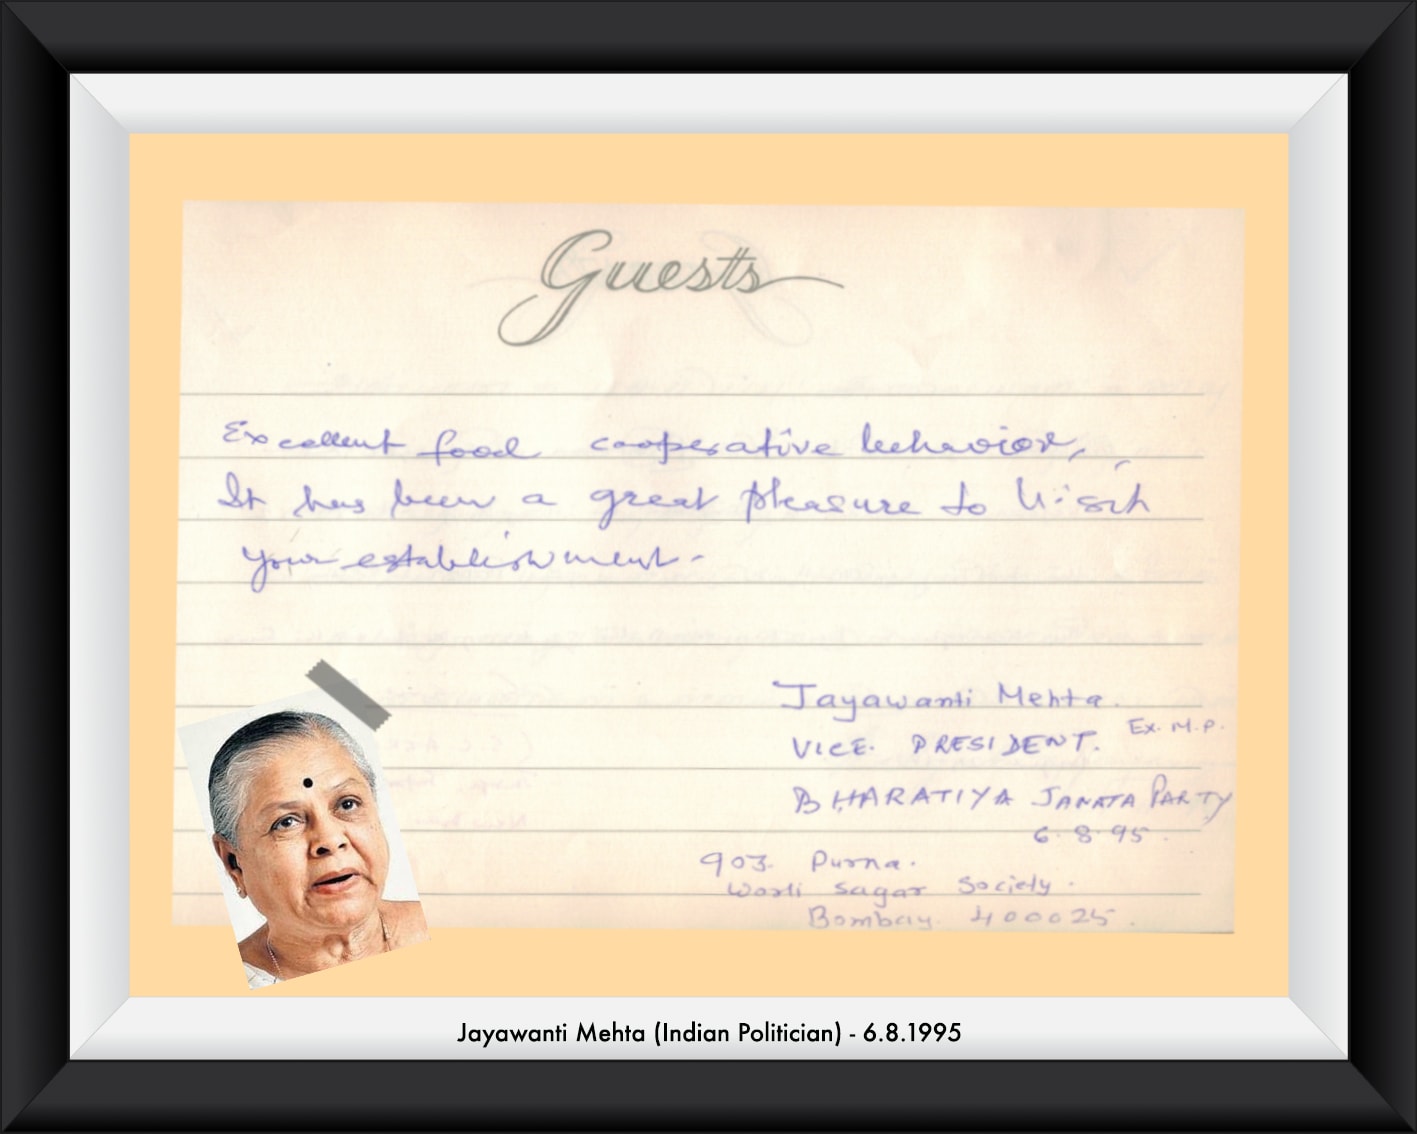 Guests
Excellent food cooperative behavior,
It has been a great pleasure to visit
your establishment.
Jayawanti Mehta.
Ex. M.P.
VICE. PRESIDENT.
BHARATIYA JANATA PARTY
6.8.95.
903. Purna.
Worli Sagar Society.
Bombay. 400025.
Jayawanti Mehta (Indian Politician) - 6.8.1995